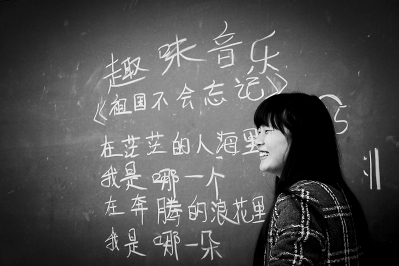 趣味音乐
《祖国不会忘记》
在茫茫的人海里
我是哪一个
在奔腾的浪花里
我是哪一朵